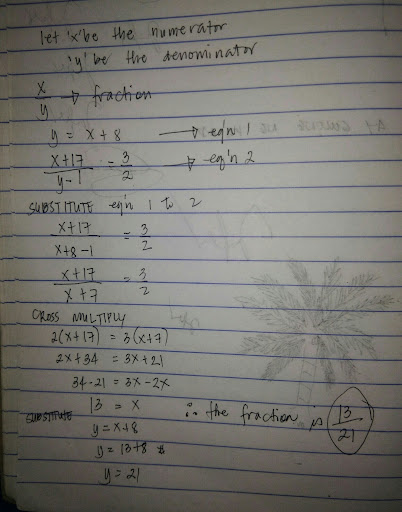 let 'x' be the numerator
'y' be the denominator
x/y → fraction
y = x + 8 → eq'n 1
x+17/y-1 = 3/2 → eq'n 2
SUBSTITUTE eq'n 1 to 2
x+17/x+8-1 = 3/2
x+17/x+7 = 3/2
CROSS MULTIPLY
2(x+17) = 3(x+7)
2x+34 = 3x+21
34-21 = 3x-2x
13 = x ∴ the fraction is 13/21
SUBSTITUTE
y = x+8
y = 13+8
y = 21